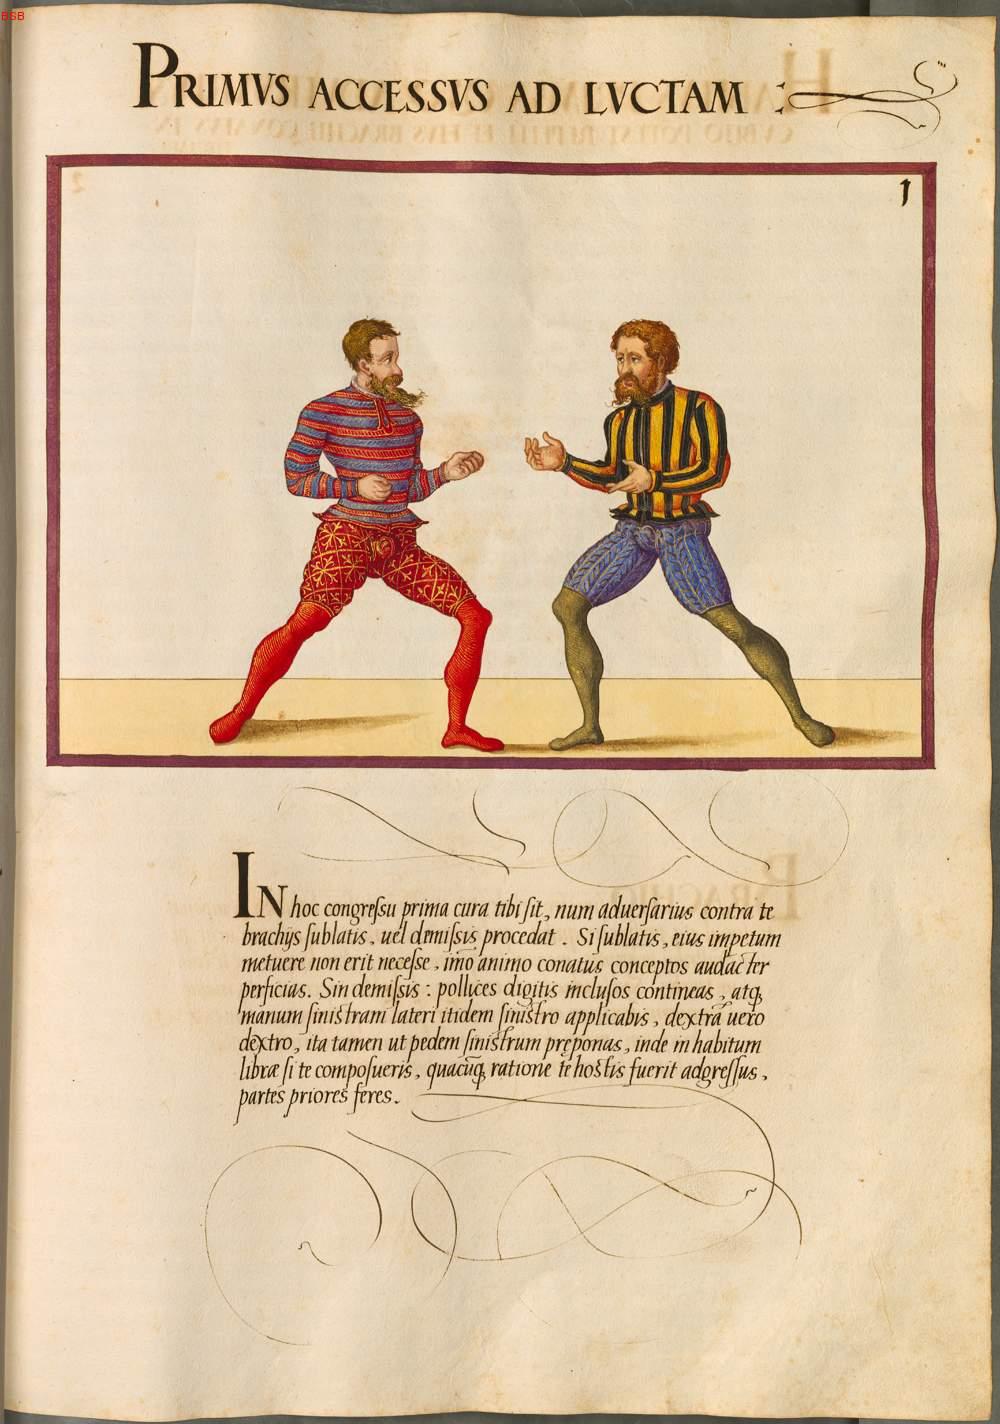 BSB
PRIMVS ACCESSVS AD LVCTAM :
1
IN hoc congreſsu prima cura tibi ſit, num aduerſarius contra te
brachijs ſublatis, uel demiſsis procedat. Si ſublatis, eius impetum
metuere non erit neceſse, imo animo conatus conceptos audacter
perficias. Sin demiſsis: pollices digitis incluſos contineas, atq̃
manum ſiniſtram lateri itidem ſiniſtro applicabis, dextrã uero
dextro, ita tamen ut pedem ſiniſtrum pręponas, inde in habitum
libræ ſi te compoſueris, quacũq̃ ratione te hoſtis fuerit adgreſſus,
partes priores feres.